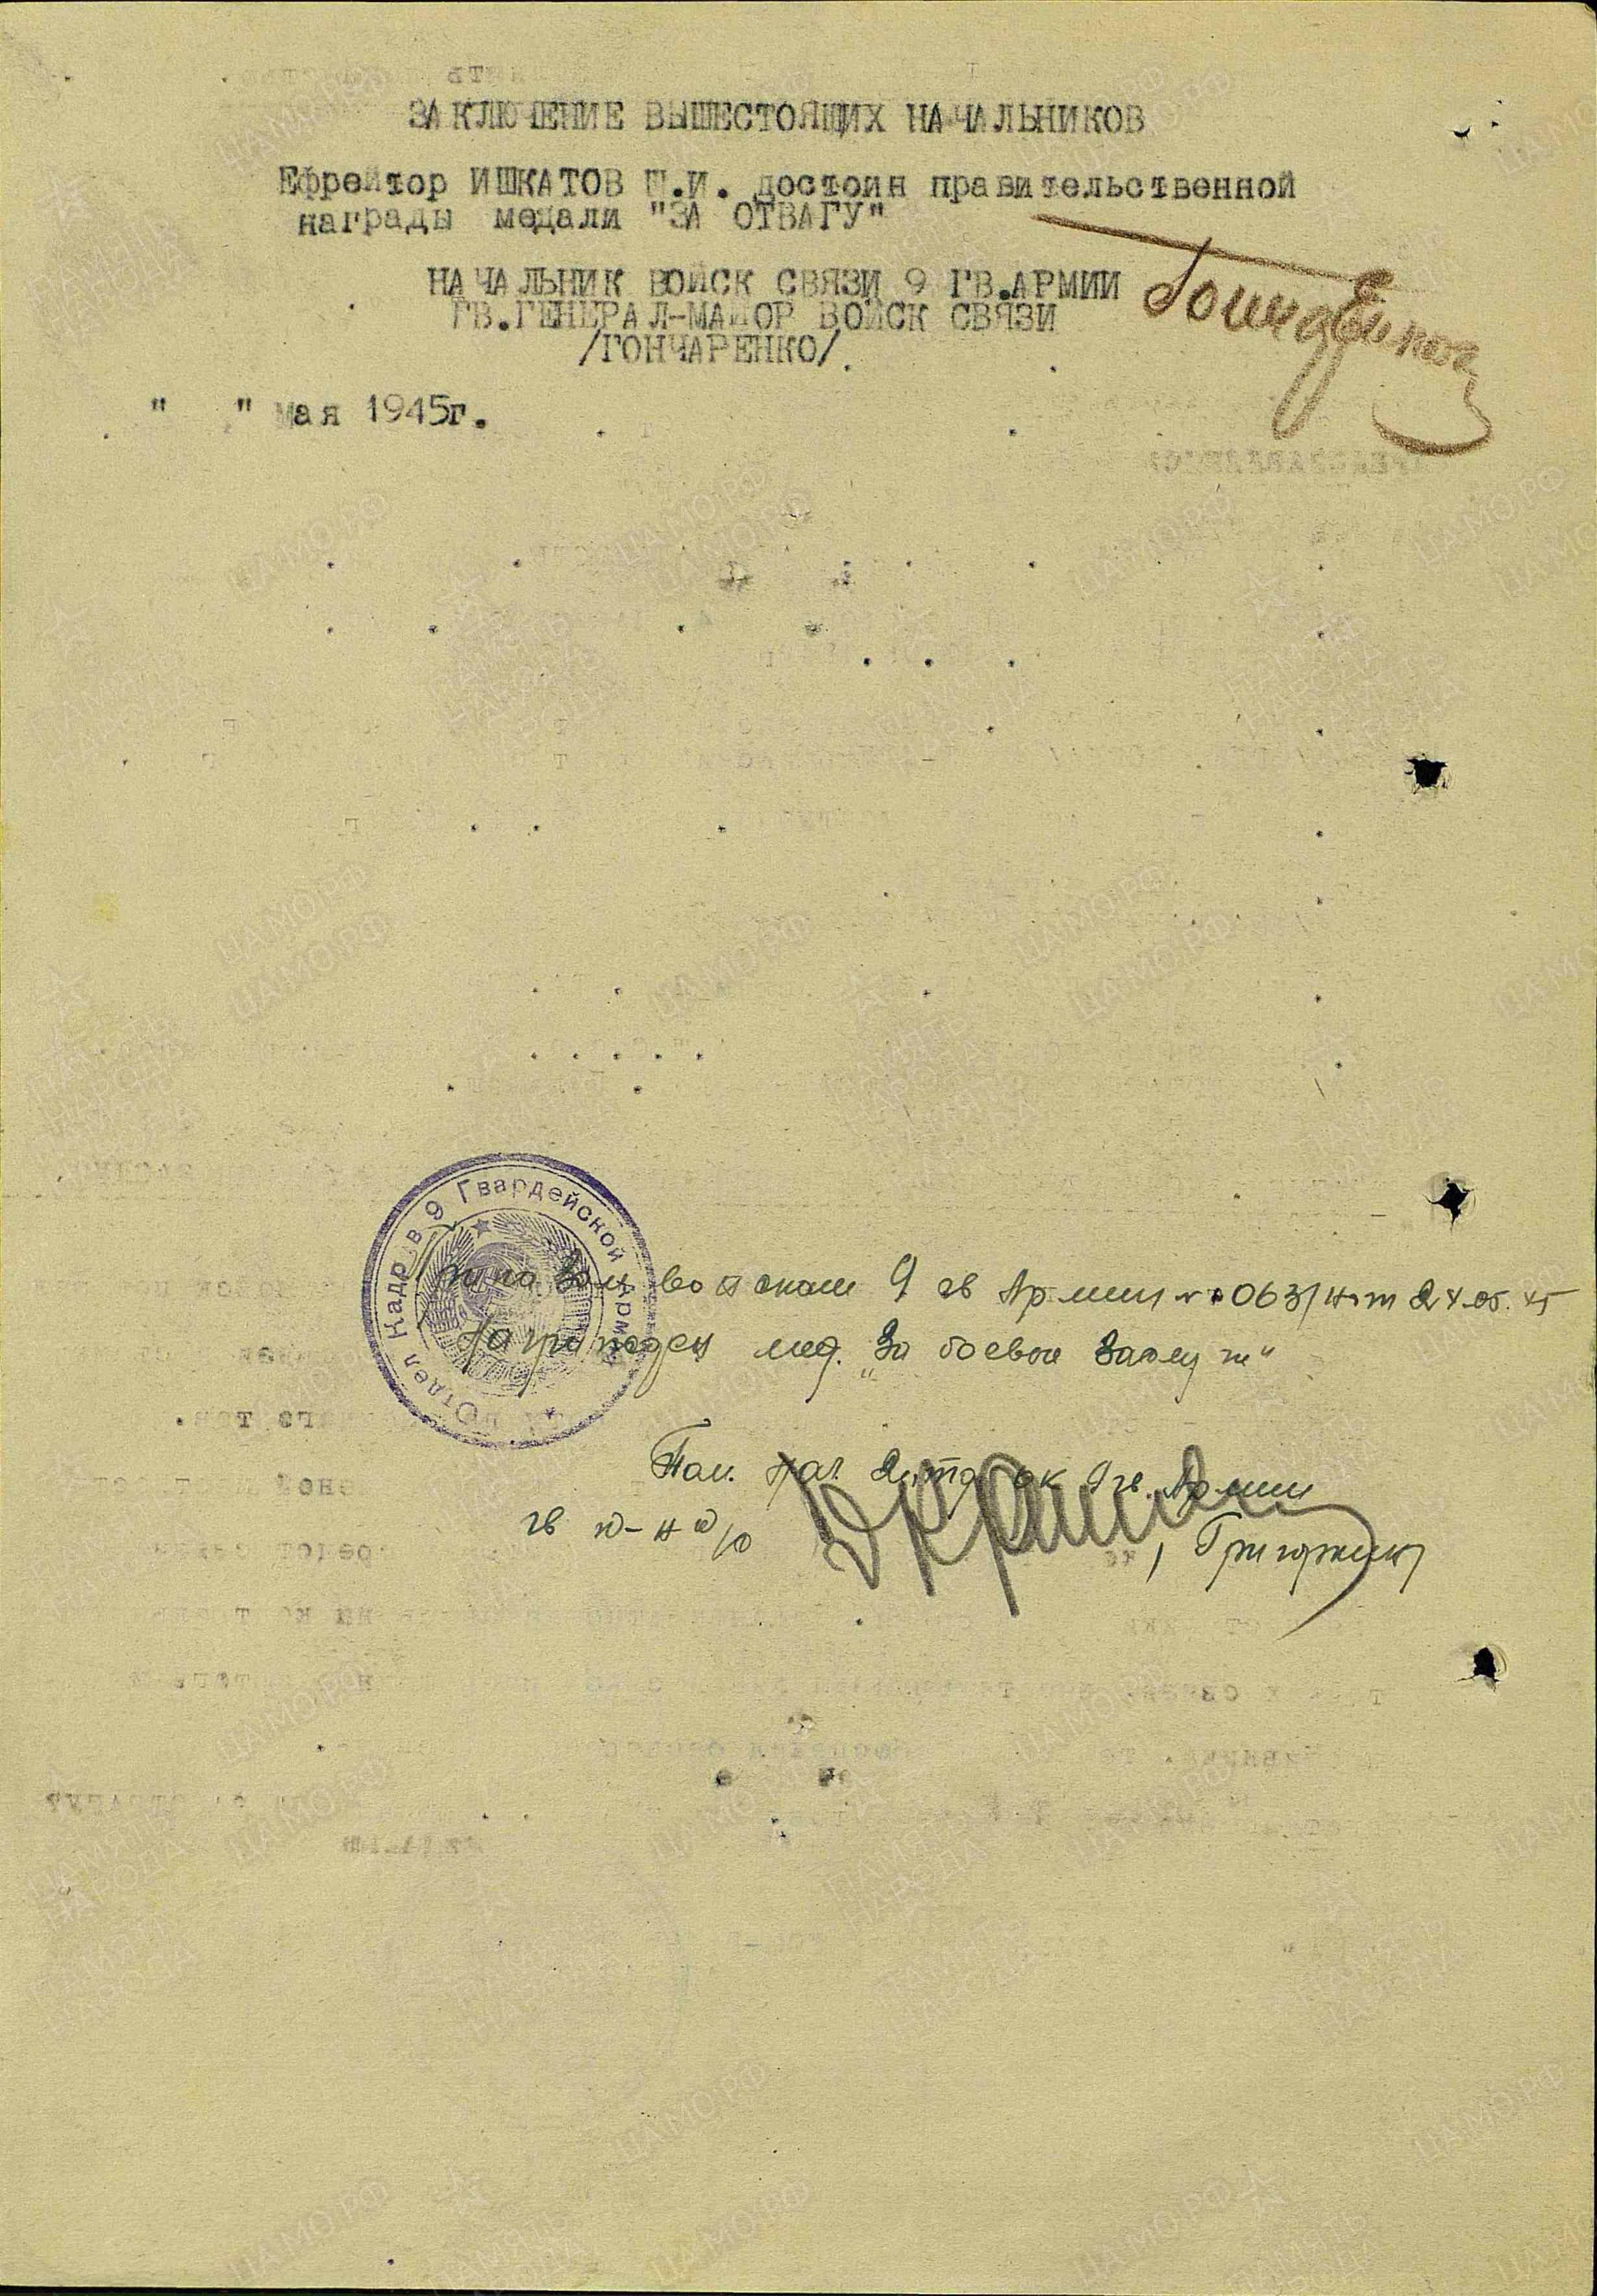 ЗАКЛЮЧЕНИЕ ВЫШЕСТОЯЩИХ НАЧАЛЬНИКОВ
Ефрейтор ИШКАТОВ П.И. достоин правительственной
награды медали "ЗА ОТВАГУ"
НАЧАЛЬНИК ВОЙСК СВЯЗИ 9 ГВ.АРМИИ
ГВ.ГЕНЕРАЛ-МАЙОР ВОЙСК СВЯЗИ
/ГОНЧАРЕНКО/.
" " мая 1945г.
Отдел Кадров 9 Гвардейской Армии
войскам 9 гв Армии № 063/н от 24.05.45
Награжден мед. "За боевые заслуги"
Пом. нач. отд. ок 9 гв. Армии
гв к-н а/с